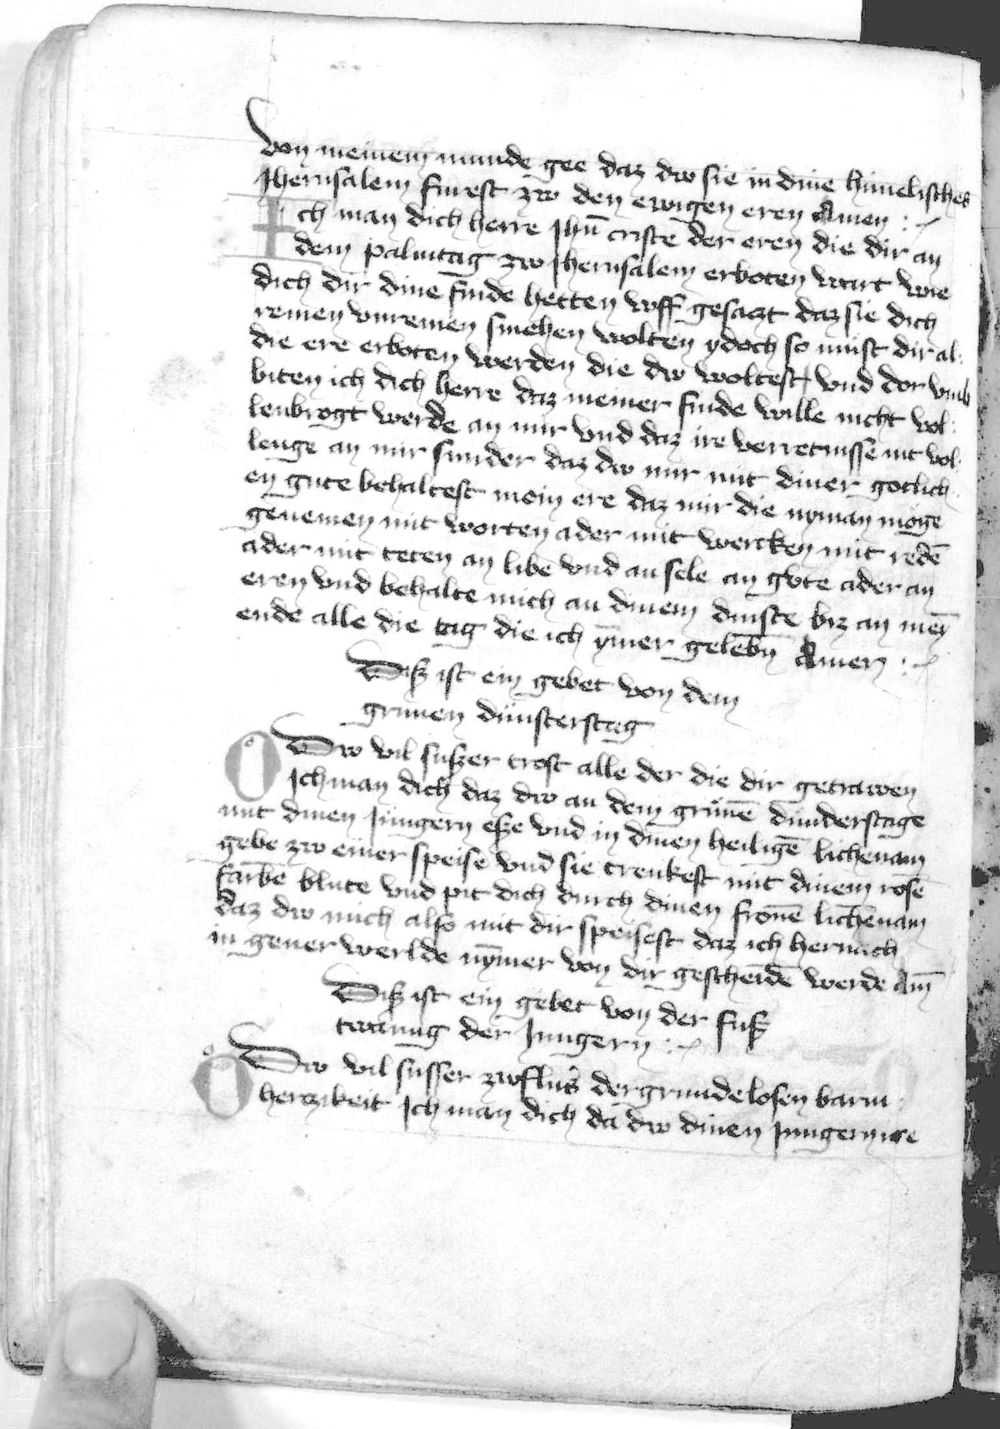 von meinem munde gee daz dw sie in dine himelisches
Jherusalem furest zw den ewigen eren Amen :
Ich man dich herre Jhū criste der eren die dir an
dem palmtag zw Jherusalem erboten wart wie
dich dir dine finde hetten vff gesaczt daz sie dich
reinen vnreinen smehen wolten ydoch so must dir al-
die ere erboten werden die dw woltest vnd dor vmb
biten ich dich herre daz meiner finde wille nicht vol-
lenbrogt werde an mir vnd daz ire verretnisse nit vol-
lenge an mir sunder daz dw mir mit diner gotlich-
en gute behaltest mein ere daz mir die nyman moge
genemen mit worten ader mit wercken mit redē
ader mit teten an libe vnd an sele an gute ader an
eren vnd behalte mich an dinem dinste biz an mei̅
ende alle die tag die ich ȳmer gelebn̄ Amen :
Disz ist ein gebet von dem
grunen dunsterstag
O Dw vil suszer trost alle der die dir getrawen
Ich man dich daz dw an dem grūnē dunderstage
mit dinen Jungern esze vnd in dinen heiligē lichenam
gebe zw einer speise vnd sie trenkest mit dinem rosē
farbē blute vnd pit dich durch dinen fronē lichenam
daz dw mich also mit dir speisest daz ich hernach
in gener werlde nȳmer von dir gescheidē werde Am̄
Disz ist ein gebet von der fusz
twaung der Jungern :
O Dw vil susser zwflus der grundelosen barm-
herczikeit Ich man dich da dw dinen Jungern